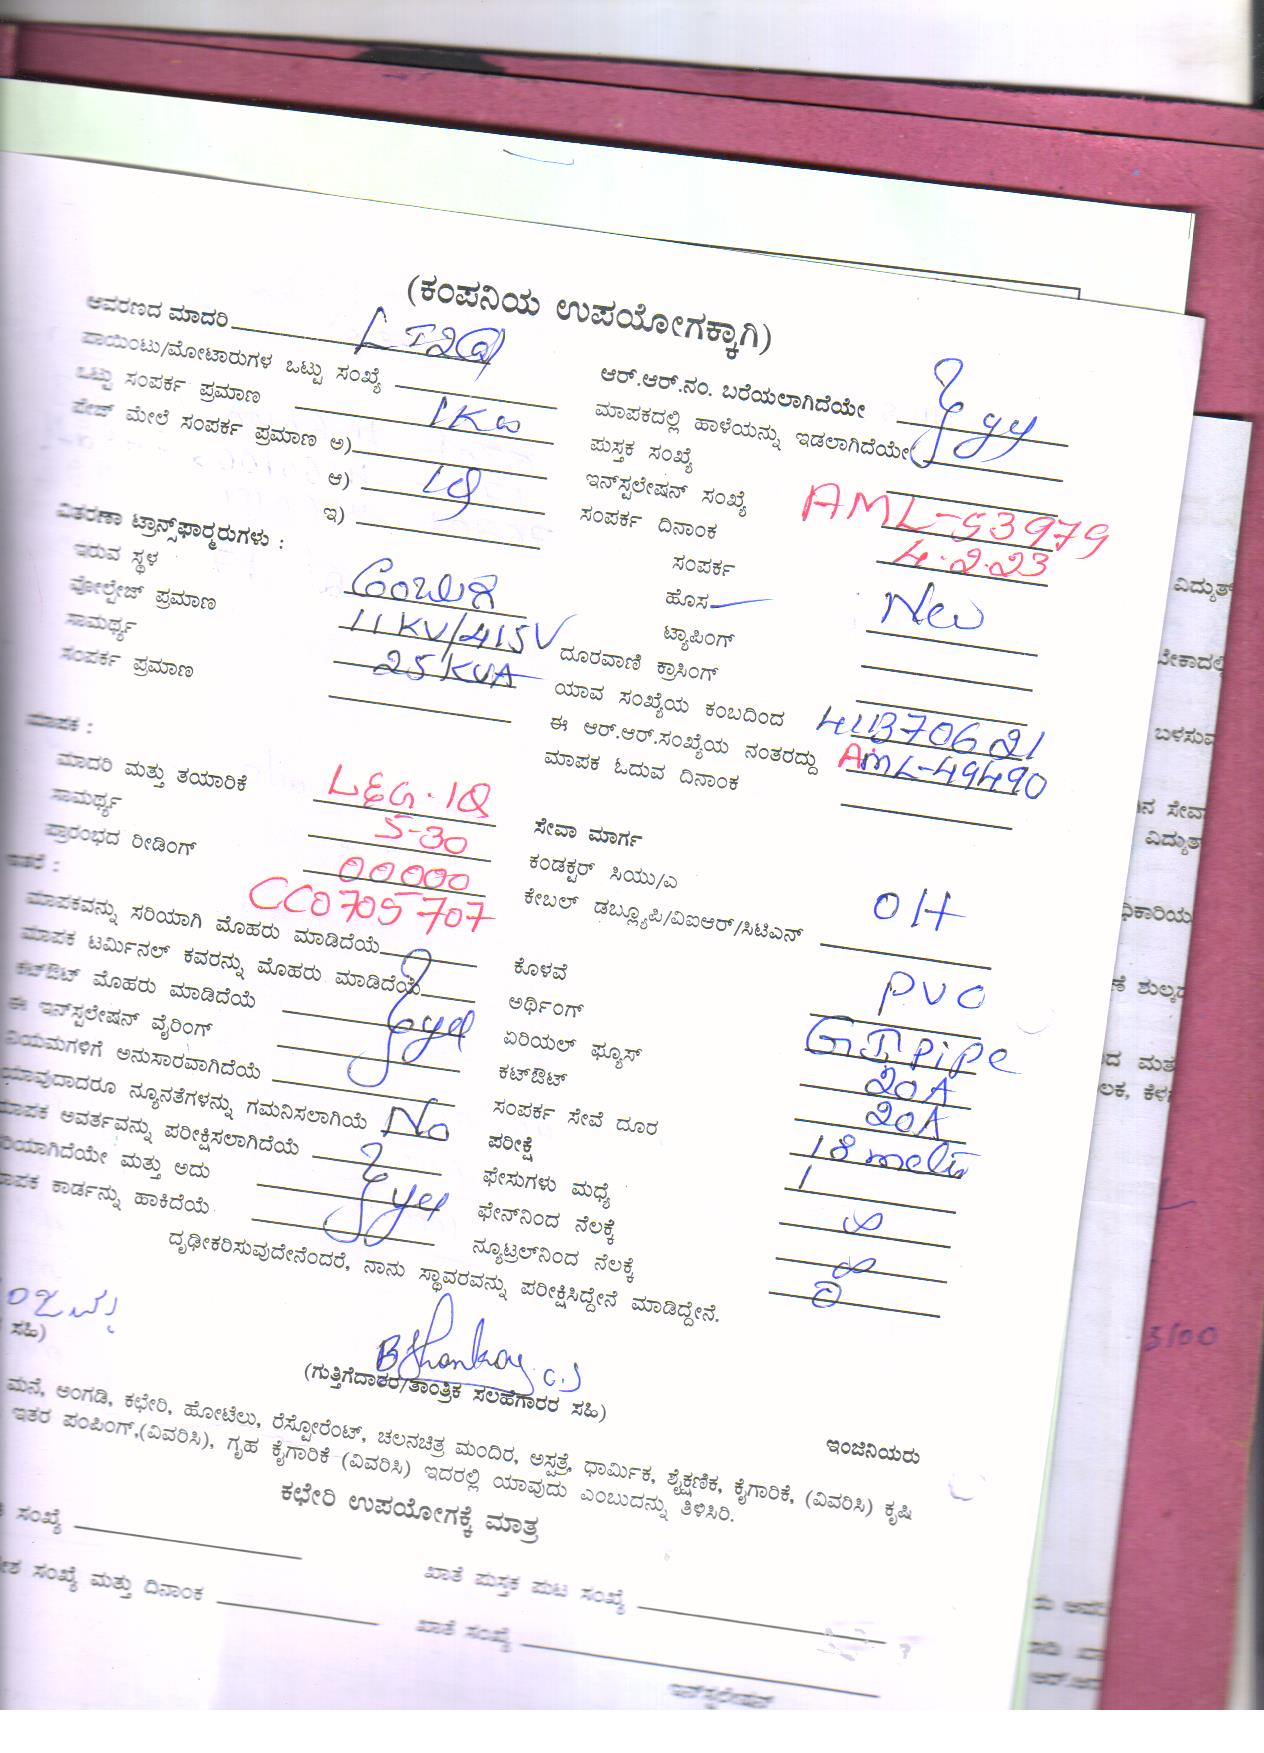 (ಕಂಪನಿಯ ಉಪಯೋಗಕ್ಕಾಗಿ)
ಆವರಣದ ಮಾದರಿ LT2(a)
ಪಾಯಿಂಟು/ಮೋಟಾರುಗಳ ಒಟ್ಟು ಸಂಖ್ಯೆ
ಒಟ್ಟು ಸಂಪರ್ಕ ಪ್ರಮಾಣ 1Kw
ಪೇಜ್ ಮೇಲೆ ಸಂಪರ್ಕ ಪ್ರಮಾಣ ಅ)
ಆ) 1Φ
ಇ)
ವಿತರಣಾ ಟ್ರಾನ್ಸ್‌ಫಾರ್‍ಮರುಗಳು :
ಇರುವ ಸ್ಥಳ
ವೋಲ್ಟೇಜ್ ಪ್ರಮಾಣ 11KV/415V
ಸಾಮರ್ಥ್ಯ 25KVA
ಸಂಪರ್ಕ ಪ್ರಮಾಣ
ಮಾಪಕ :
ಮಾದರಿ ಮತ್ತು ತಯಾರಿಕೆ L&G-1Φ
ಸಾಮರ್ಥ್ಯ 5-30
ಪ್ರಾರಂಭದ ರೀಡಿಂಗ್ 00000
CC0705707
ಇತರೆ :
ಮಾಪಕವನ್ನು ಸರಿಯಾಗಿ ಮೊಹರು ಮಾಡಿದೆಯೆ
ಮಾಪಕ ಟರ್ಮಿನಲ್ ಕವರನ್ನು ಮೊಹರು ಮಾಡಿದೆಯೆ
ಕಟ್‌ಔಟ್ ಮೊಹರು ಮಾಡಿದೆಯೆ yes
ಈ ಇನ್‌ಸ್ಟಲೇಷನ್ ವೈರಿಂಗ್
ನಿಯಮಗಳಿಗೆ ಅನುಸಾರವಾಗಿದೆಯೆ
ಯಾವುದಾದರೂ ನ್ಯೂನತೆಗಳನ್ನು ಗಮನಿಸಲಾಗಿಯೆ No
ಮಾಪಕ ಅವರ್ತವನ್ನು ಪರೀಕ್ಷಿಸಲಾಗಿದೆಯೆ
ಸರಿಯಾಗಿದೆಯೇ ಮತ್ತು ಅದು yes
ಮಾಪಕ ಕಾರ್ಡನ್ನು ಹಾಕಿದೆಯೆ
ಆರ್.ಆರ್.ನಂ. ಬರೆಯಲಾಗಿದೆಯೇ yes
ಮಾಪಕದಲ್ಲಿ ಹಾಳೆಯನ್ನು ಇಡಲಾಗಿದೆಯೇ
ಪುಸ್ತಕ ಸಂಖ್ಯೆ
ಇನ್‌ಸ್ಟಲೇಷನ್ ಸಂಖ್ಯೆ AML-53979
ಸಂಪರ್ಕ ದಿನಾಂಕ 4.2.23
ಸಂಪರ್ಕ
ಹೊಸ New
ಟ್ಯಾಪಿಂಗ್
ದೂರವಾಣಿ ಕ್ರಾಸಿಂಗ್
ಯಾವ ಸಂಖ್ಯೆಯ ಕಂಬದಿಂದ 4UB70621
ಈ ಆರ್.ಆರ್.ಸಂಖ್ಯೆಯ ನಂತರದ್ದು AML-49490
ಮಾಪಕ ಓದುವ ದಿನಾಂಕ
ಸೇವಾ ಮಾರ್ಗ
ಕಂಡಕ್ಟರ್ ಸಿಯು/ಎ
ಕೇಬಲ್ ಡಬ್ಲ್ಯೂಪಿ/ವಿಐಆರ್/ಸಿಟಿಎಸ್ O/H
ಕೊಳವೆ PVC
ಅರ್ಥಿಂಗ್ GI pipe
ಏರಿಯಲ್ ಫ್ಯೂಸ್ 20A
ಕಟ್‌ಔಟ್ 20A
ಸಂಪರ್ಕ ಸೇವೆ ದೂರ 18
ಪರೀಕ್ಷೆ
ಫೇಸುಗಳು ಮಧ್ಯೆ ∞
ಫೇಸ್‌ನಿಂದ ನೆಲಕ್ಕೆ ∞
ನ್ಯೂಟ್ರಲ್‌ನಿಂದ ನೆಲಕ್ಕೆ 0
ದೃಢೀಕರಿಸುವುದೇನೆಂದರೆ, ನಾನು ಸ್ಥಾವರವನ್ನು ಪರೀಕ್ಷಿಸಿದ್ದೇನೆ ಮಾಡಿದ್ದೇನೆ.
ಸಹಿ)
(ಗುತ್ತಿಗೆದಾರರ/ತಾಂತ್ರಿಕ ಸಲಹೆಗಾರರ ಸಹಿ)
ಇಂಜಿನಿಯರು
ಮನೆ, ಅಂಗಡಿ, ಕಛೇರಿ, ಹೋಟೆಲು, ರೆಸ್ಟೋರೆಂಟ್, ಚಲನಚಿತ್ರ ಮಂದಿರ, ಆಸ್ಪತ್ರೆ, ಧಾರ್ಮಿಕ, ಶೈಕ್ಷಣಿಕ, ಕೈಗಾರಿಕೆ, (ವಿವರಿಸಿ) ಕೃಷಿ
ಇತರ ಪಂಪಿಂಗ್,(ವಿವರಿಸಿ), ಗೃಹ ಕೈಗಾರಿಕೆ (ವಿವರಿಸಿ) ಇದರಲ್ಲಿ ಯಾವುದು ಎಂಬುದನ್ನು ತಿಳಿಸಿರಿ.
ಕಛೇರಿ ಉಪಯೋಗಕ್ಕೆ ಮಾತ್ರ
ಸಂಖ್ಯೆ
ಖಾತೆ ಪುಸ್ತಕ ಪುಟ ಸಂಖ್ಯೆ
ಸಂಖ್ಯೆ ಮತ್ತು ದಿನಾಂಕ
ಖಾತೆ ಸಂಖ್ಯೆ
ಇನ್‌ಸ್ಟಲೇಷನ್